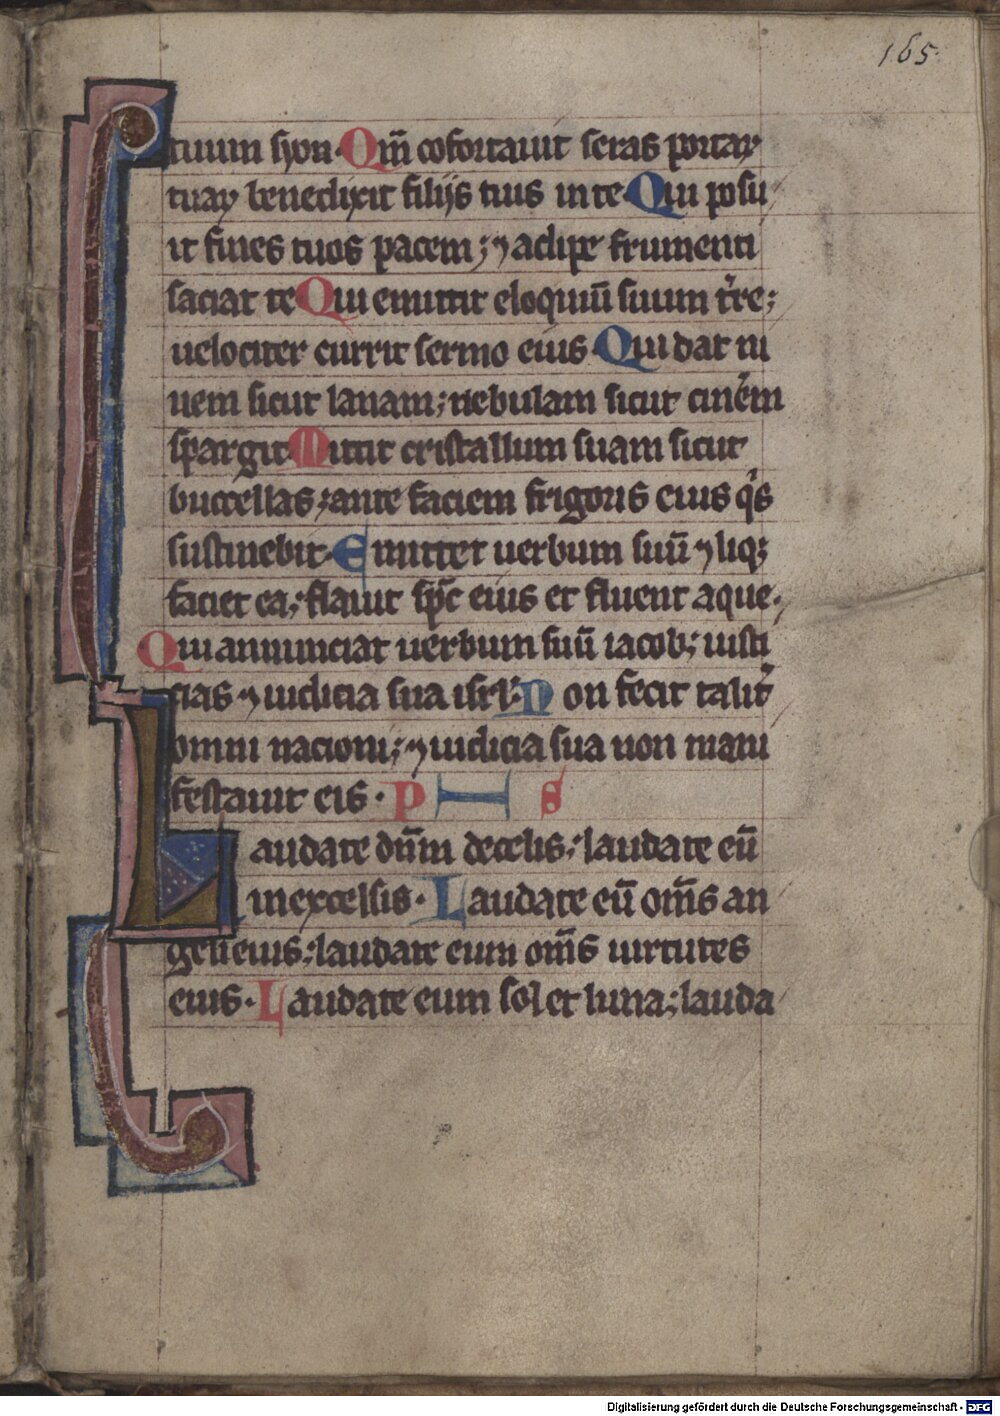 165
tuum syon. Qm̅ cōfortauit seras portaꝝ
tuaꝝ benedixit filijs tuis in te. Qui posu
it fines tuos pacem; ⁊ adipe frumenti
saciat te Qui emittit eloquiū suum t̓re;
uelociter currit sermo eius. Qui dat ni
uem sicut lanam; nebulam sicut cinēm
spargit. Mittit cristallum suam sicut
buccellas; ante faciem frigoris eius q̓s
sustinebit. Emittet uerbum suū ⁊ liq;
faciet ea; flauit sp̅c eius et fluent aque.
Qui annunciat uerbum suū iacob; iusti
cias ⁊ iudicia sua isrl̓. Non fecit talit̓
omni nacioni; ⁊ iudicia sua non mani
festauit eis. P S
Laudate dn̅m de celis; laudate eū
in excelsis. Laudate eū om̅s an
geli eius; laudate eum om̅s uirtutes
eius. Laudate eum sol et luna; lauda
Digitalisierung gefördert durch die Deutsche Forschungsgemeinschaft - DFG